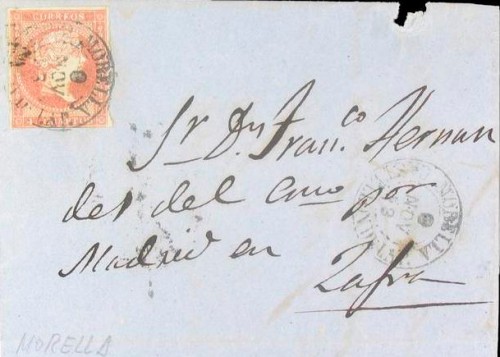 CORREOS
MORELLA
NOV
Sr Dn Franco Hernan
des del Cano por
Madrid en
Zafra
MORELLA
NOV
MORELLA